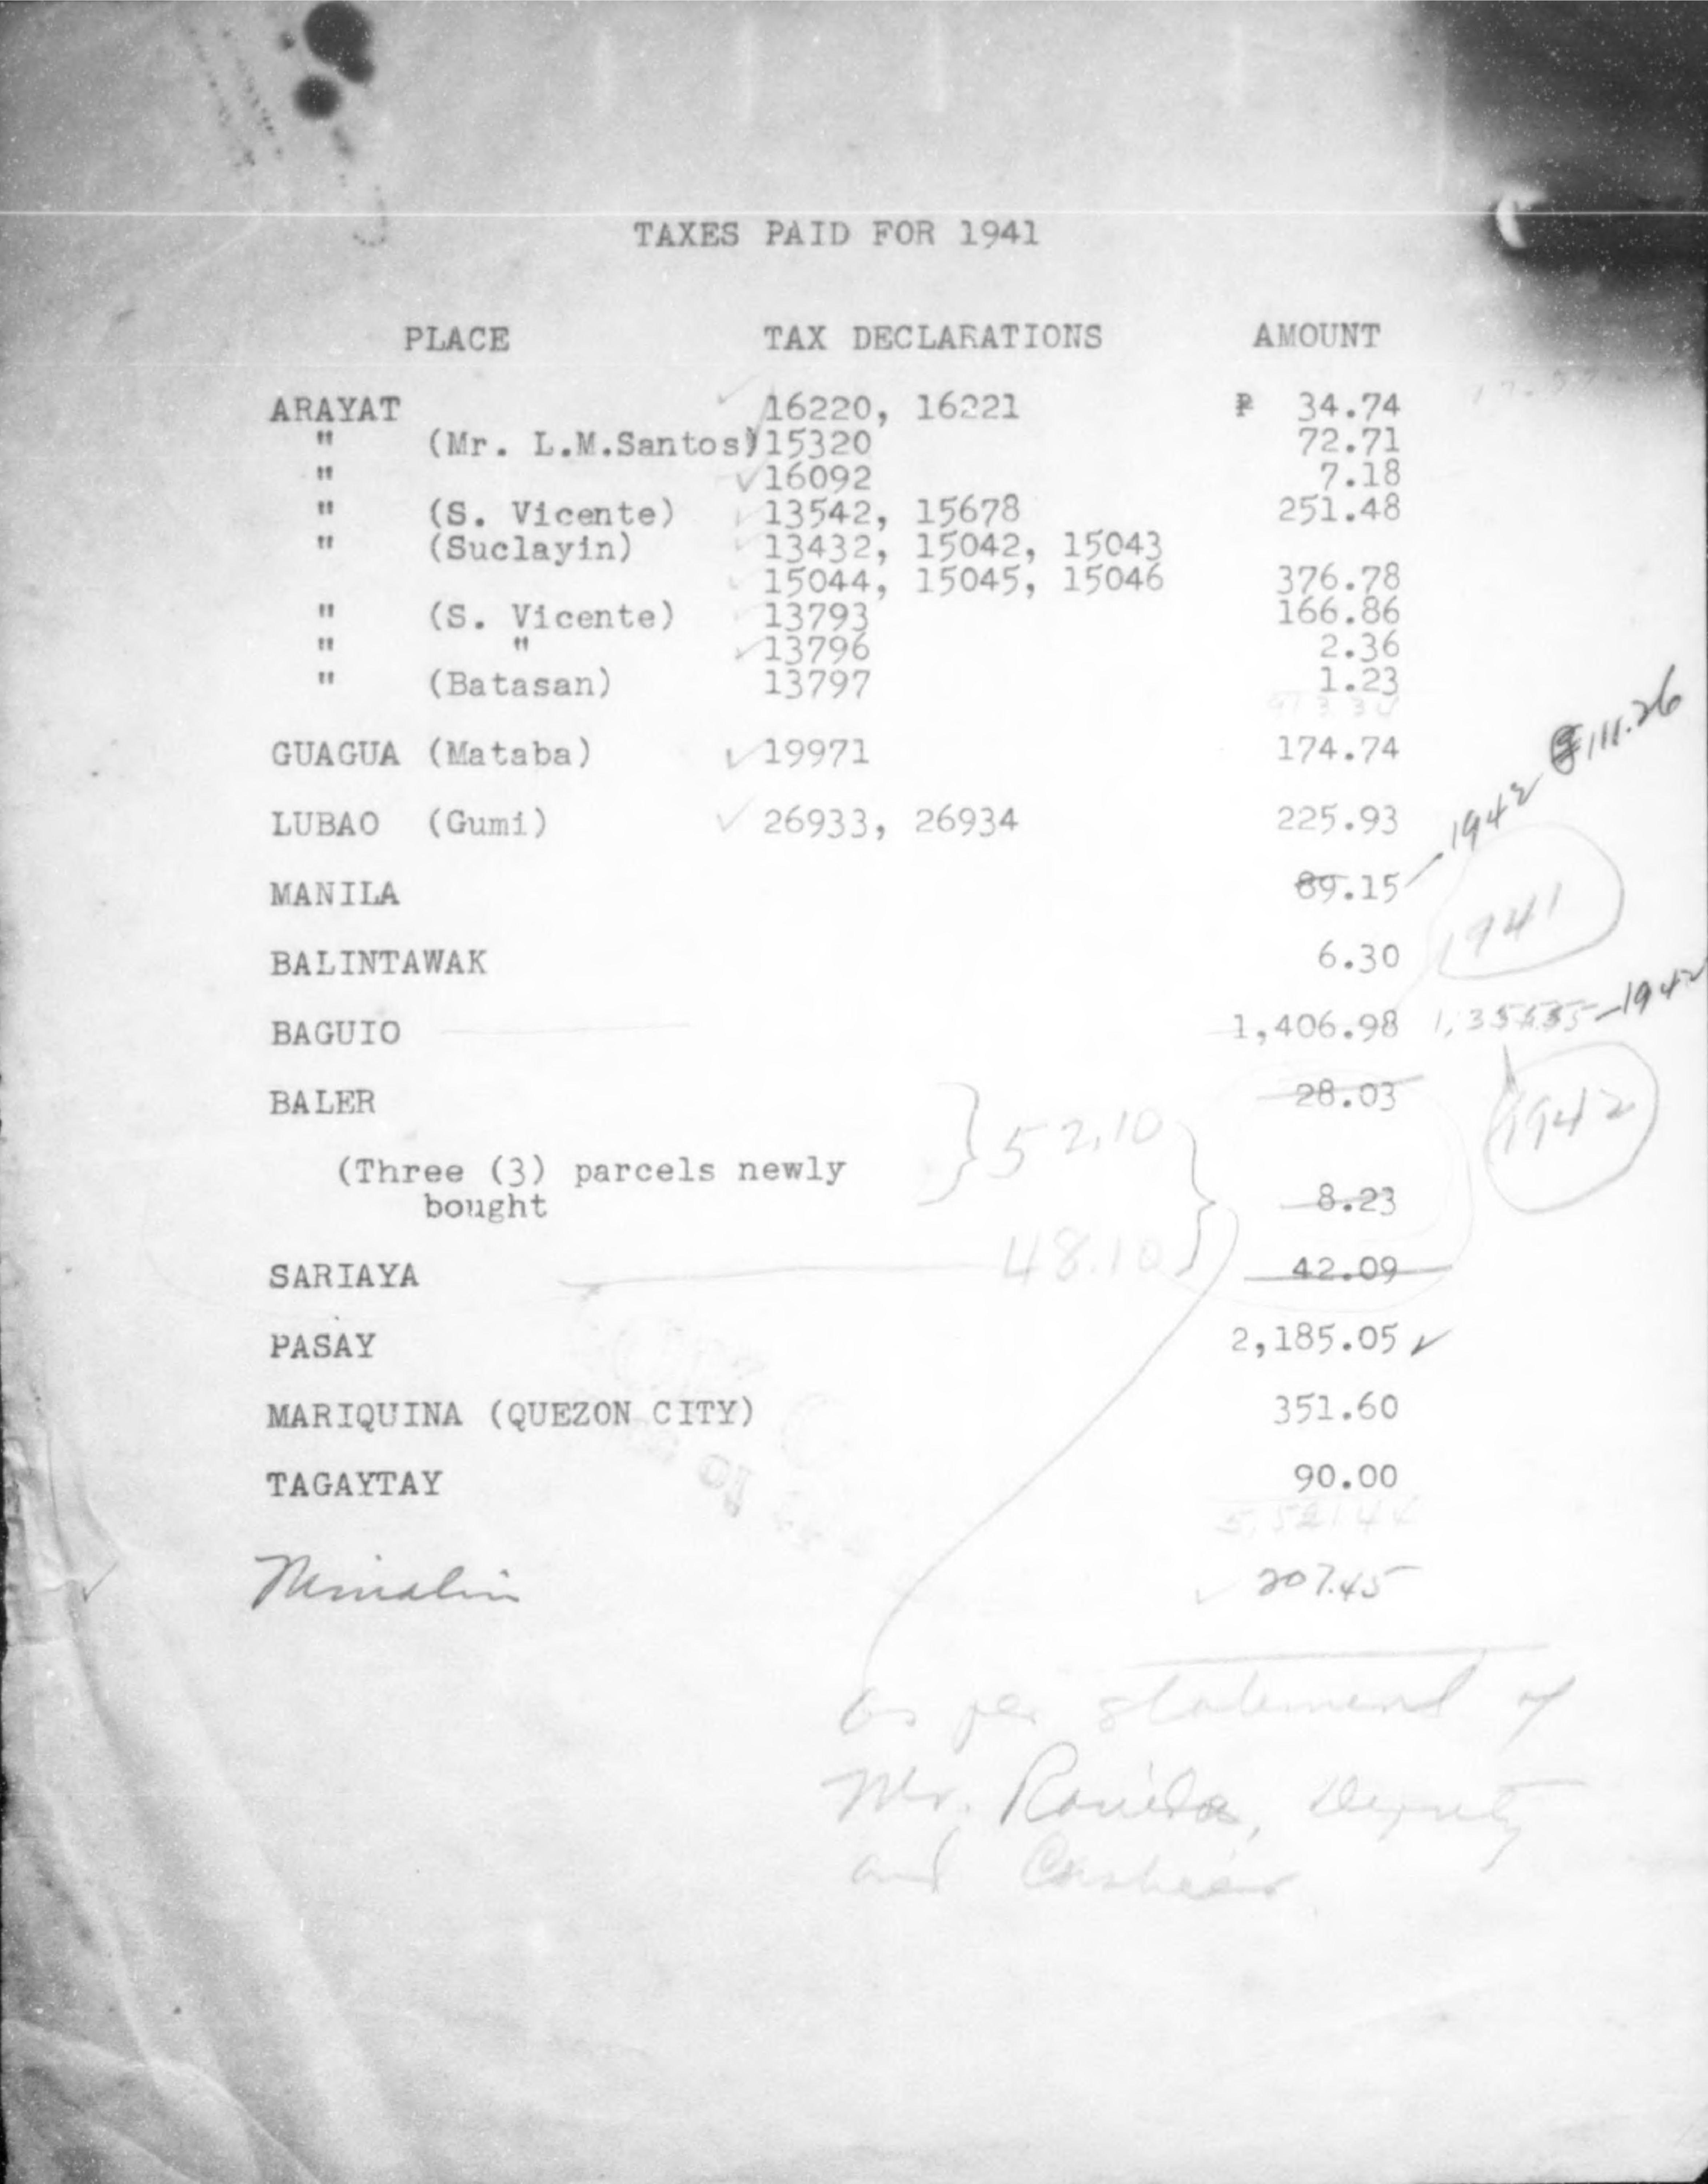 TAXES PAID FOR 1941
PLACE TAX DECLARATIONS AMOUNT
ARAYAT 16220, 16221 ₱ 34.74
" (Mr. L.M.Santos) 15320 72.71
" 16092 7.18
" (S. Vicente) 13542, 15678 251.48
" (Suclayin) 13432, 15042, 15043
15044, 15045, 15046 376.78
" (S. Vicente) 13793 166.86
" " 13796 2.36
" (Batasan) 13797 1.23
913 34
GUAGUA (Mataba) 19971 174.74
LUBAO (Gumi) 26933, 26934 225.93
MANILA 89.15 1942 111.26
BALINTAWAK 6.30 1941
BAGUIO 1,406.98 -1942
BALER 28.03 1942
52.10
(Three (3) parcels newly
bought 8.23
SARIAYA 48.10 42.09
PASAY 2,185.05
MARIQUINA (QUEZON CITY) 351.60
TAGAYTAY 90.00
Minalin 207.45
as per statement of
Mr. Deputy
and Cashier